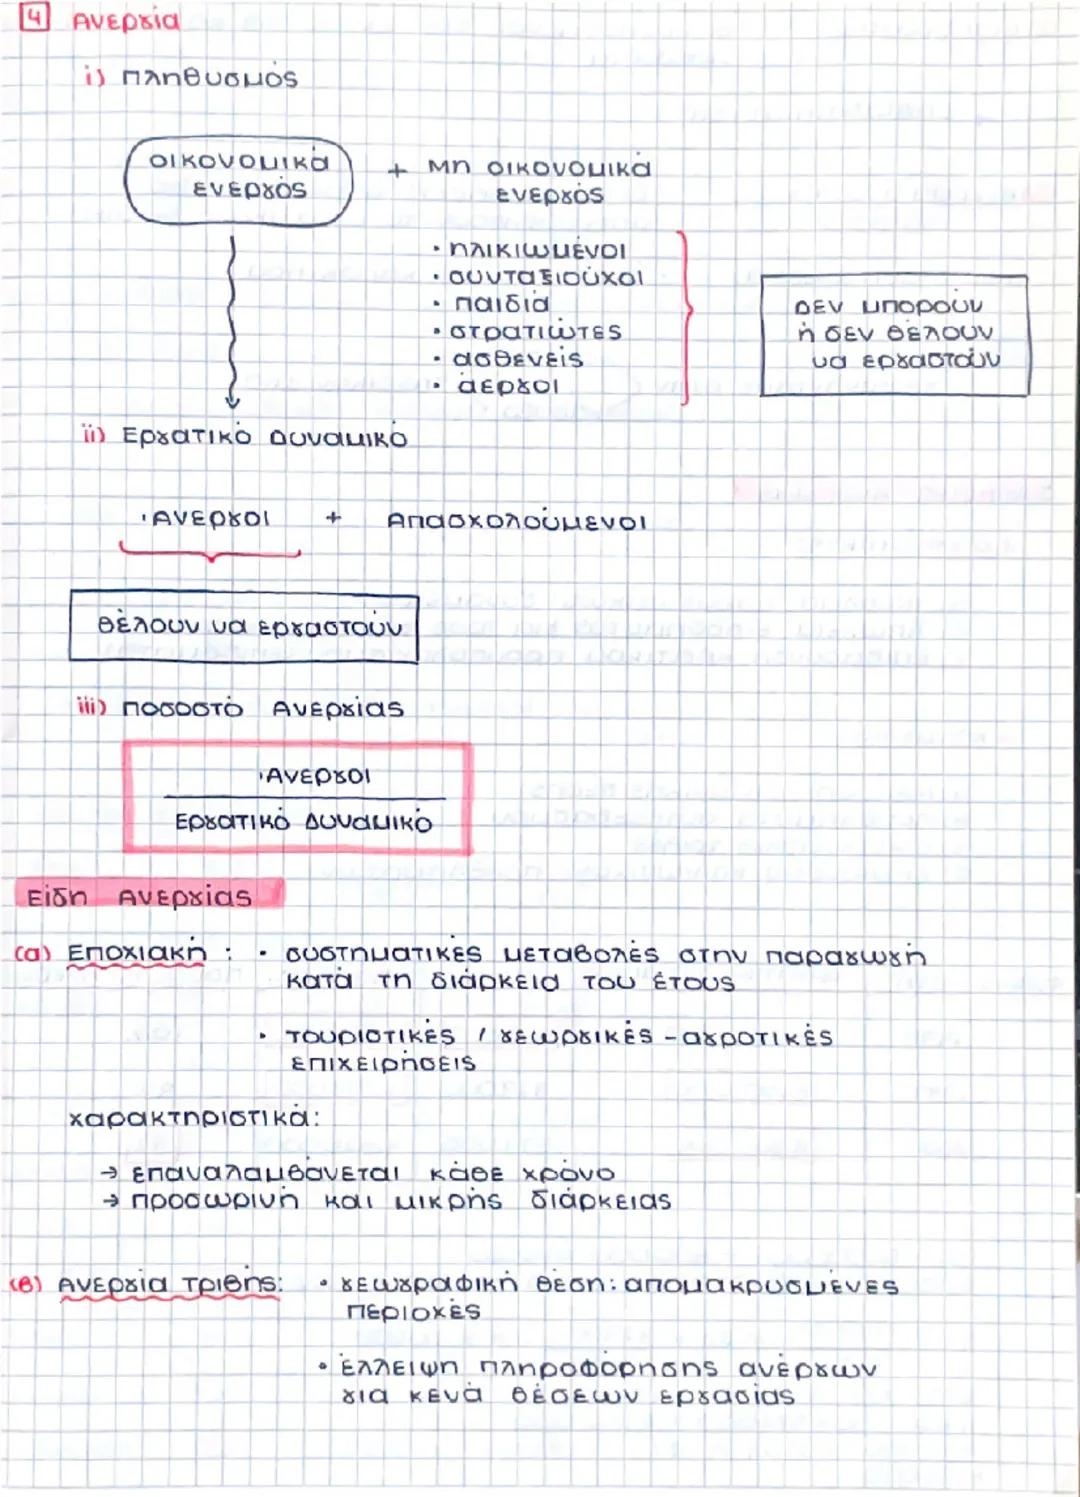 4 Ανεργία
i) Πληθυσμός
οικονομικά + Μη οικονομικά
ενεργός ενεργός
• ηλικιωμένοι
• συνταξιούχοι
• παιδιά
• στρατιώτες
• ασθενείς
• άεργοι
Δεν μπορούν
ή δεν θέλουν
να εργαστούν
ii) Εργατικό Δυναμικό
Άνεργοι + Απασχολούμενοι
Θέλουν να εργαστούν
iii) Ποσοστό Ανεργίας
Άνεργοι
Εργατικό Δυναμικό
Είδη Ανεργίας
(α) Εποχιακή : • συστηματικές μεταβολές στην παραγωγή
κατά τη διάρκεια του έτους
• τουριστικές / γεωργικές - αγροτικές
επιχειρήσεις
χαρακτηριστικά:
→ επαναλαμβάνεται κάθε χρόνο
→ προσωρινή και μικρής διάρκειας
(β) Ανεργία τριβής: • γεωγραφική θέση: απομακρυσμένες
περιοχές
• έλλειψη πληροφόρησης ανέργων
για κενά θέσεων εργασίας